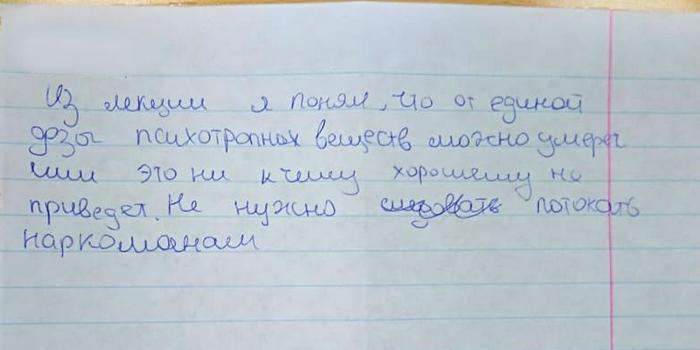 Из лекции я понял, что от единой
дозы психотропных веществ можно умереть
или это ни к чему хорошему не
приведет. Не нужно следовать потокать
наркоманам